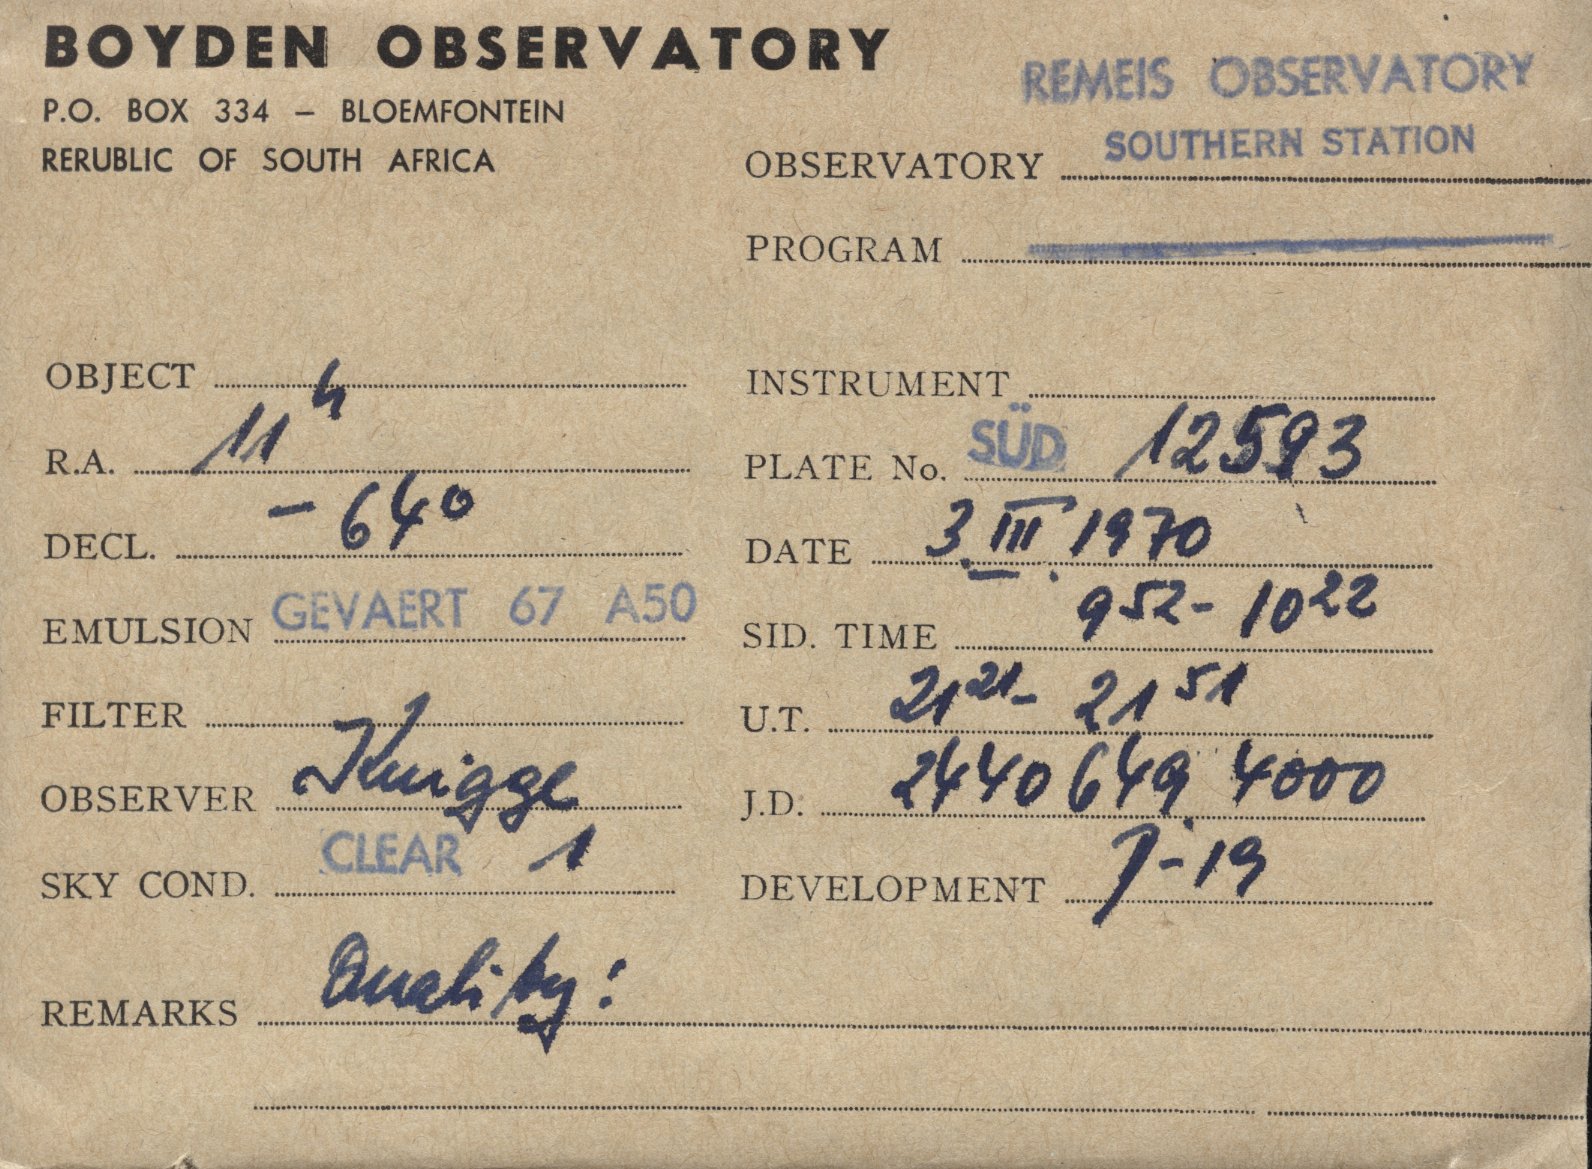 BOYDEN OBSERVATORY
P.O. BOX 334 – BLOEMFONTEIN
RERUBLIC OF SOUTH AFRICA
OBSERVATORY REMEIS OBSERVATORY
SOUTHERN STATION
PROGRAM
OBJECT
R.A. 11h
DECL. – 64°
EMULSION GEVAERT 67 A50
FILTER
OBSERVER Knigge
SKY COND. CLEAR 1
INSTRUMENT
PLATE No. SÜD 12593
DATE 3. III. 1970
SID. TIME 9 52 - 10 22
U.T. 21 21 - 21 51
J.D. 2440 649. 4000
DEVELOPMENT J-19
REMARKS Quality: